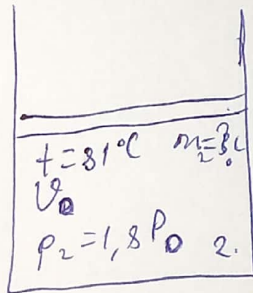 t=81°C m₂=?
V₀
P₂=1,8P₀ 2.